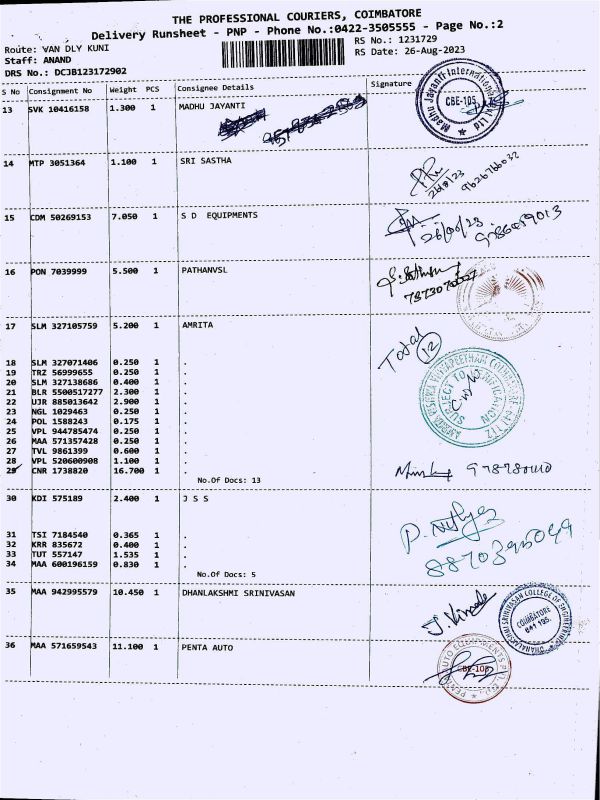 THE PROFESSIONAL COURIERS, COIMBATORE
Delivery Runsheet - PNP - Phone No.:0422-3505555 - Page No.:2
Route: VAN DLY KUNI
RS No.: 1231729
Staff: ANAND
RS Date: 26-Aug-2023
DRS No.: DCJB123172902
S No Consignment No Weight PCS Consignee Details Signature
13 SVK 10416158 1.300 1 MADHU JAYANTI
Madhu Jayanti International Pvt Ltd
CBE-105
14 MTP 3051364 1.100 1 SRI SASTHA
15 CDM 50269153 7.050 1 S D EQUIPMENTS
26/08/23
16 PON 7039999 5.500 1 PATHANVSL
17 SLM 327105759 5.200 1 AMRITA
Total 12
18 SLM 327071406 0.250 1 .
19 TRZ 56999655 0.250 1 .
20 SLM 327138686 0.400 1 .
21 BLR 5500517277 2.300 1 .
22 UJR 885013642 2.900 1 .
23 NGL 1029463 0.250 1 .
24 POL 1588243 0.175 1 .
25 VPL 944785474 0.250 1 .
26 MAA 571357428 0.250 1 .
27 TVL 9861399 0.600 1 .
28 VPL 520600908 1.100 1 .
29 CNR 1738820 16.700 1 .
No.Of Docs: 13
AMRITA VISHWA VIDYAPEETHAM COIMBATORE 641 112
SUBJECT TO VERIFICATION
30 KDI 575189 2.400 1 J S S
31 TSI 7184540 0.365 1 .
32 KRR 835672 0.400 1 .
33 TUT 557147 1.535 1 .
34 MAA 600196159 0.830 1 .
No.Of Docs: 5
P. Nithya
8870395049
35 MAA 942995579 10.450 1 DHANLAKSHMI SRINIVASAN
DHANALAKSHMI SRINIVASAN COLLEGE OF ENGINEERING
COIMBATORE
641 105.
36 MAA 571659543 11.100 1 PENTA AUTO
PENTA AUTO EQUIPMENTS P. LTD.
CBE-105